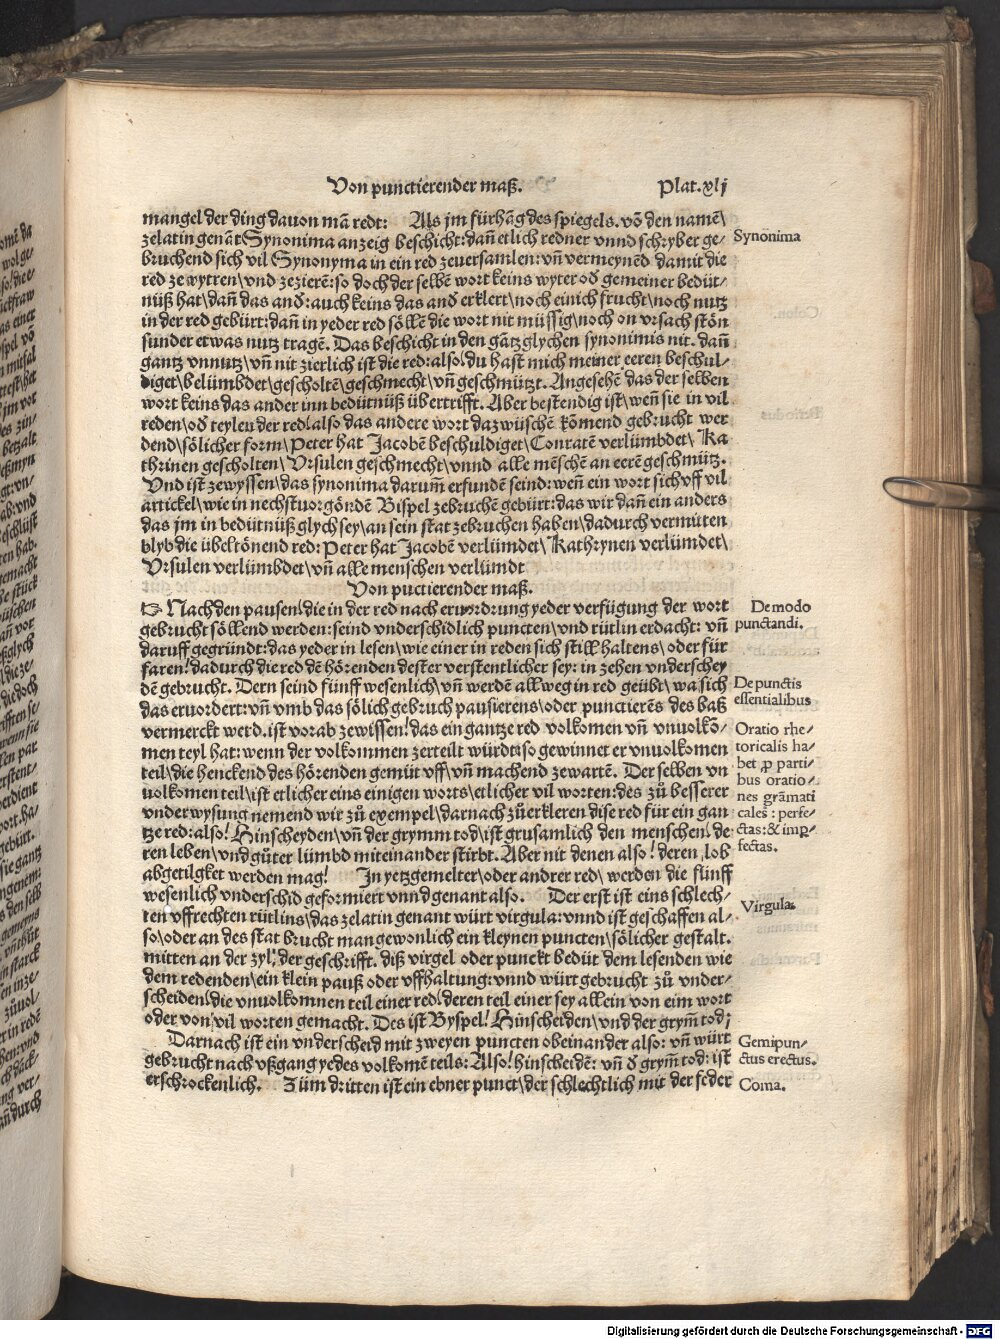 Von punctierender maß. Plat. xlj
mangel der ding dauon mā redt: Als jm fürhāg des spiegels. vō den namē\
zelatin genāt Synonima anzeig beschicht: dañ etlich redner vnnd schryber ge⸗
bruchend sich vil Synonyma in ein red zeuersamlen: vñ vermeynēd damit die
red zewytren\ vnd zezierē: so doch der selbē wort keins wyter oď gemeiner bedüt⸗
nüß hat\ dañ das anď: auch keins das anď erklert\ noch einich frucht\ noch nutz
in der red gebürt: dañ in yeder red söllē die wort nit müssig\ noch on vrsach stōn
sunder etwas nutz tragē. Das beschicht in den gātzglychen synonimis nit. dañ
gantz vnnutz\ vñ nit zierlich ist die red: also. du hast mich meiner eeren beschul⸗
diget\ belümbdet\ gescholtē\ geschmecht\ vñ geschmützt. Angesehē das der selben
wort keins das ander inn bedütnüß übertrifft. Aber bestendig ist\ weñ sie in vil
reden\ oď teylen der red\ also das andere wort dazwüschē kōmend gebrucht wer
dend\ sölicher form\ Peter hat Jacobē beschuldiget\ Conratē verlümbdet\ Ka
thrinen gescholten\ Vrsulen geschmecht\ vnnd alle mēschē an eerē geschmütz.
Vnd ist zewyssen\ das synonima darum̄ erfundē seind: weñ ein wort sich vff vil
artickel\ wie in nechstuorgōndē Bispel zebruchē gebürt: das wir dañ ein anders
das jm in bedütnüß glych sey\ an sein stat zebruchen haben\ dadurch vermiten
blyb die übeltönend red: Peter hat Jacobē verlümdet\ Kathrynen verlümdet\
Vrsulen verlümbdet\ vñ alle menschen verlümdt
Von puctierender maß.
☞ Nach den pausen\ die in der red nach eruordrung yeder verfügung der wort
gebrucht söllend werden: seind vnderschidlich puncten\ vnd rütlin erdacht: vñ
daruff gegründt: das yeder in lesen\ wie einer in reden sich still haltens\ oder für
faren! dadurch die red dē hörenden dester verstentlicher sey: in zehen vnderschey
dē gebrucht. Dern seind fünff wesenlich\ vñ werdē allweg in red geübt\ wa sich
das eruordert: vñ vmb das sölich gebruch pausierens\ oder punctierēs des baß
vermerckt werd. ist vorab zewissen! das ein gantze red volkomen vñ vnuolkō⸗
men teyl hat: wenn der volkommen zerteilt würdt: so gewinnet er vnuolkomen
teil\ die henckend des hörenden gemüt vff\ vñ machend zewartē. Der selben vn
uolkomen teil\ ist etlicher eins einigen worts\ etlicher vil worten: des zů besserer
vnderwysung nemend wir zů exempel\ darnach zůerkleren dise red für ein gan
tze red: also! Hinscheyden\ vñ der grymm tod\ ist grusamlich den menschen\ de
ren leben\ vnd gůter lümbd miteinander stirbt. Aber nit denen also! deren\ lob
abgetilgket werden mag! In yetzgemelter\ oder andrer red\ werden die flinff
wesenlich vnderschid geformiert vnnd genant also. Der erst ist eins schlech⸗
ten vffrechten rütlins\ das zelatin genant würt virgula: vnnd ist geschaffen al⸗
so\ oder an des stat brucht man gewonlich ein kleynen puncten\ sölicher gestalt.
mitten an der zyl\ der geschrifft. diß virgel oder punckt bedüt dem lesenden wie
dem redenden\ ein klein pauß oder vffhaltung: vnnd würt gebrucht zů vnder⸗
scheiden\ die vnuolkomnen teil einer red\ deren teil einer sey allein von eim wort
oder von vil worten gemacht. Des ist Byspel! Hinscheiden\ vnd der grym̄ tod;
Darnach ist ein vnderscheid mit zweyen puncten obeinander also: vñ würt
gebrucht nach vßgang yedes volkomē teils: Also! hinscheidē: vñ ď grym̄ tod: ist
erschrockenlich. Zům dritten ist ein ebner punct\ der schlechtlich mit der feder
Synonima
De modo
punctandi.
De punctis
essentialibus
Oratio rhe⸗
toricalis ha⸗
bet ꝓ parti⸗
bus oratio⸗
nes grāmati
cales: perfe⸗
ctas: & imꝑ⸗
fectas.
Virgula.
Gemipun⸗
ctus erectus.
Coma.
Digitalisierung gefördert durch die Deutsche Forschungsgemeinschaft - DFG